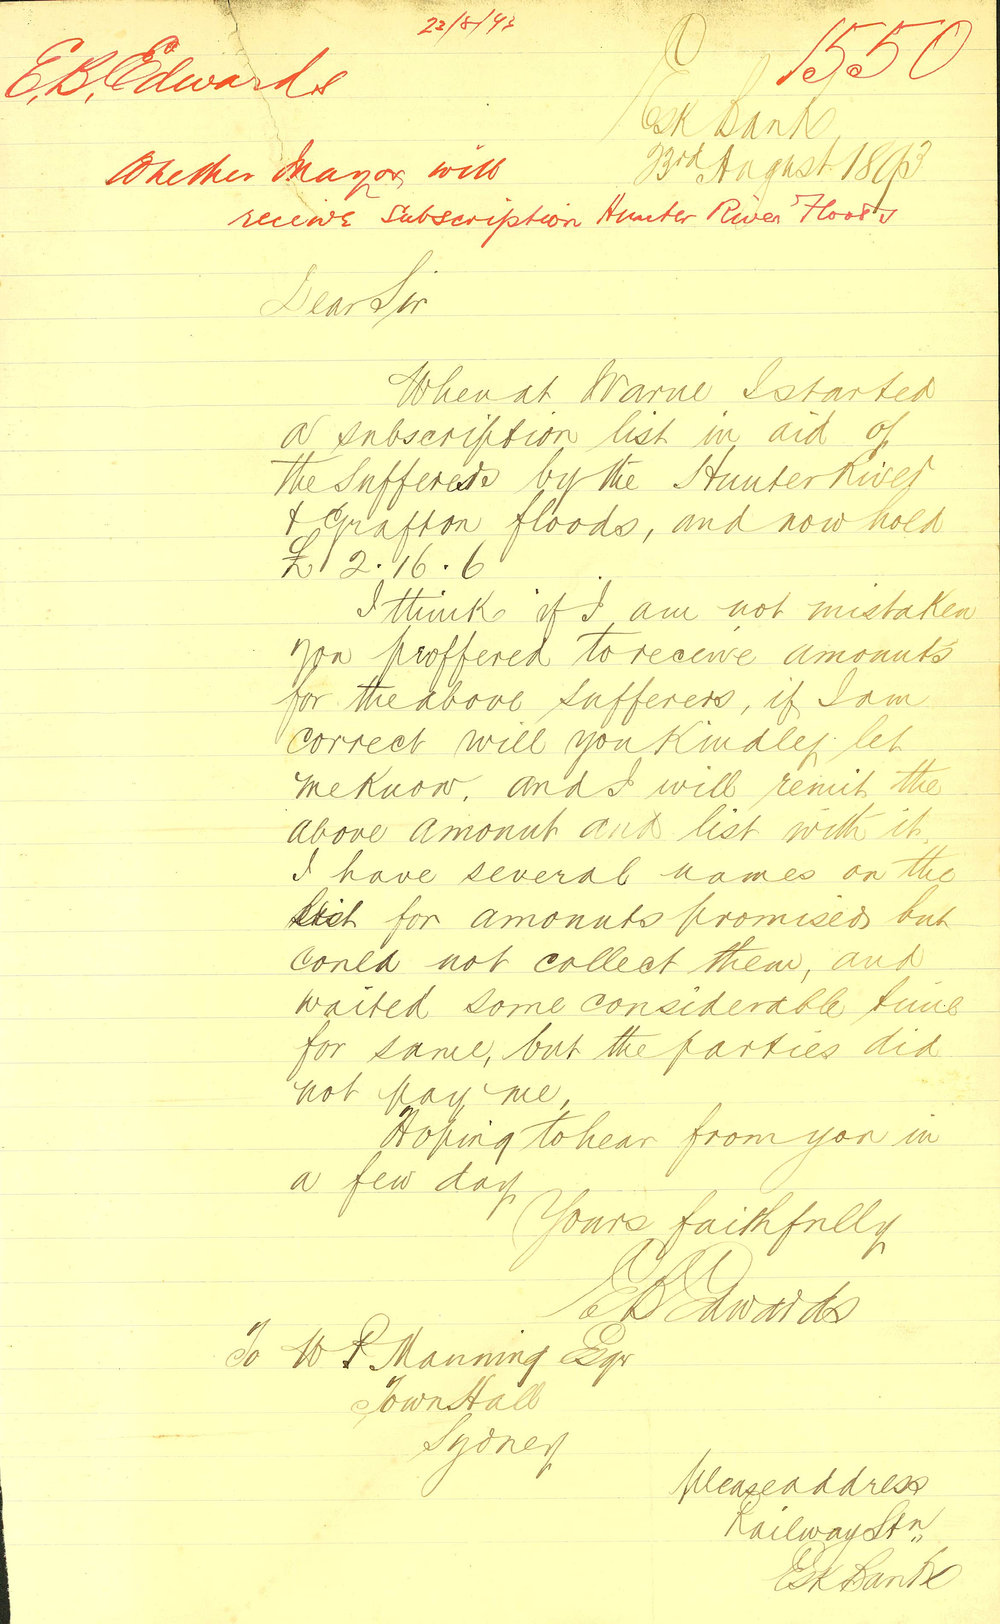 23/8/93
1550
E. B. Edwards
Esk Bank
23rd August 1893
Whether Mayor will
receive subscription Hunter River Floods
Dear Sir
When at Warne I started
a subscription list in aid of
the sufferers by the Hunter River
& Grafton floods, and now hold
£ 2.16.6
I think if I am not mistaken
you proffered to receive amounts
for the above sufferers, if I am
correct will you Kindly let
me Know, and I will remit the
above amount and list with it.
I have several names on the
list for amounts promised but
could not collect them, and
waited some considerable time
for same, but the parties did
not pay me,
Hoping to hear from you in
a few day
Yours faithfully
E B Edwards
To W P Manning Esqr
Town Hall
Sydney
please address
Railway Stn,,
Esk Bank